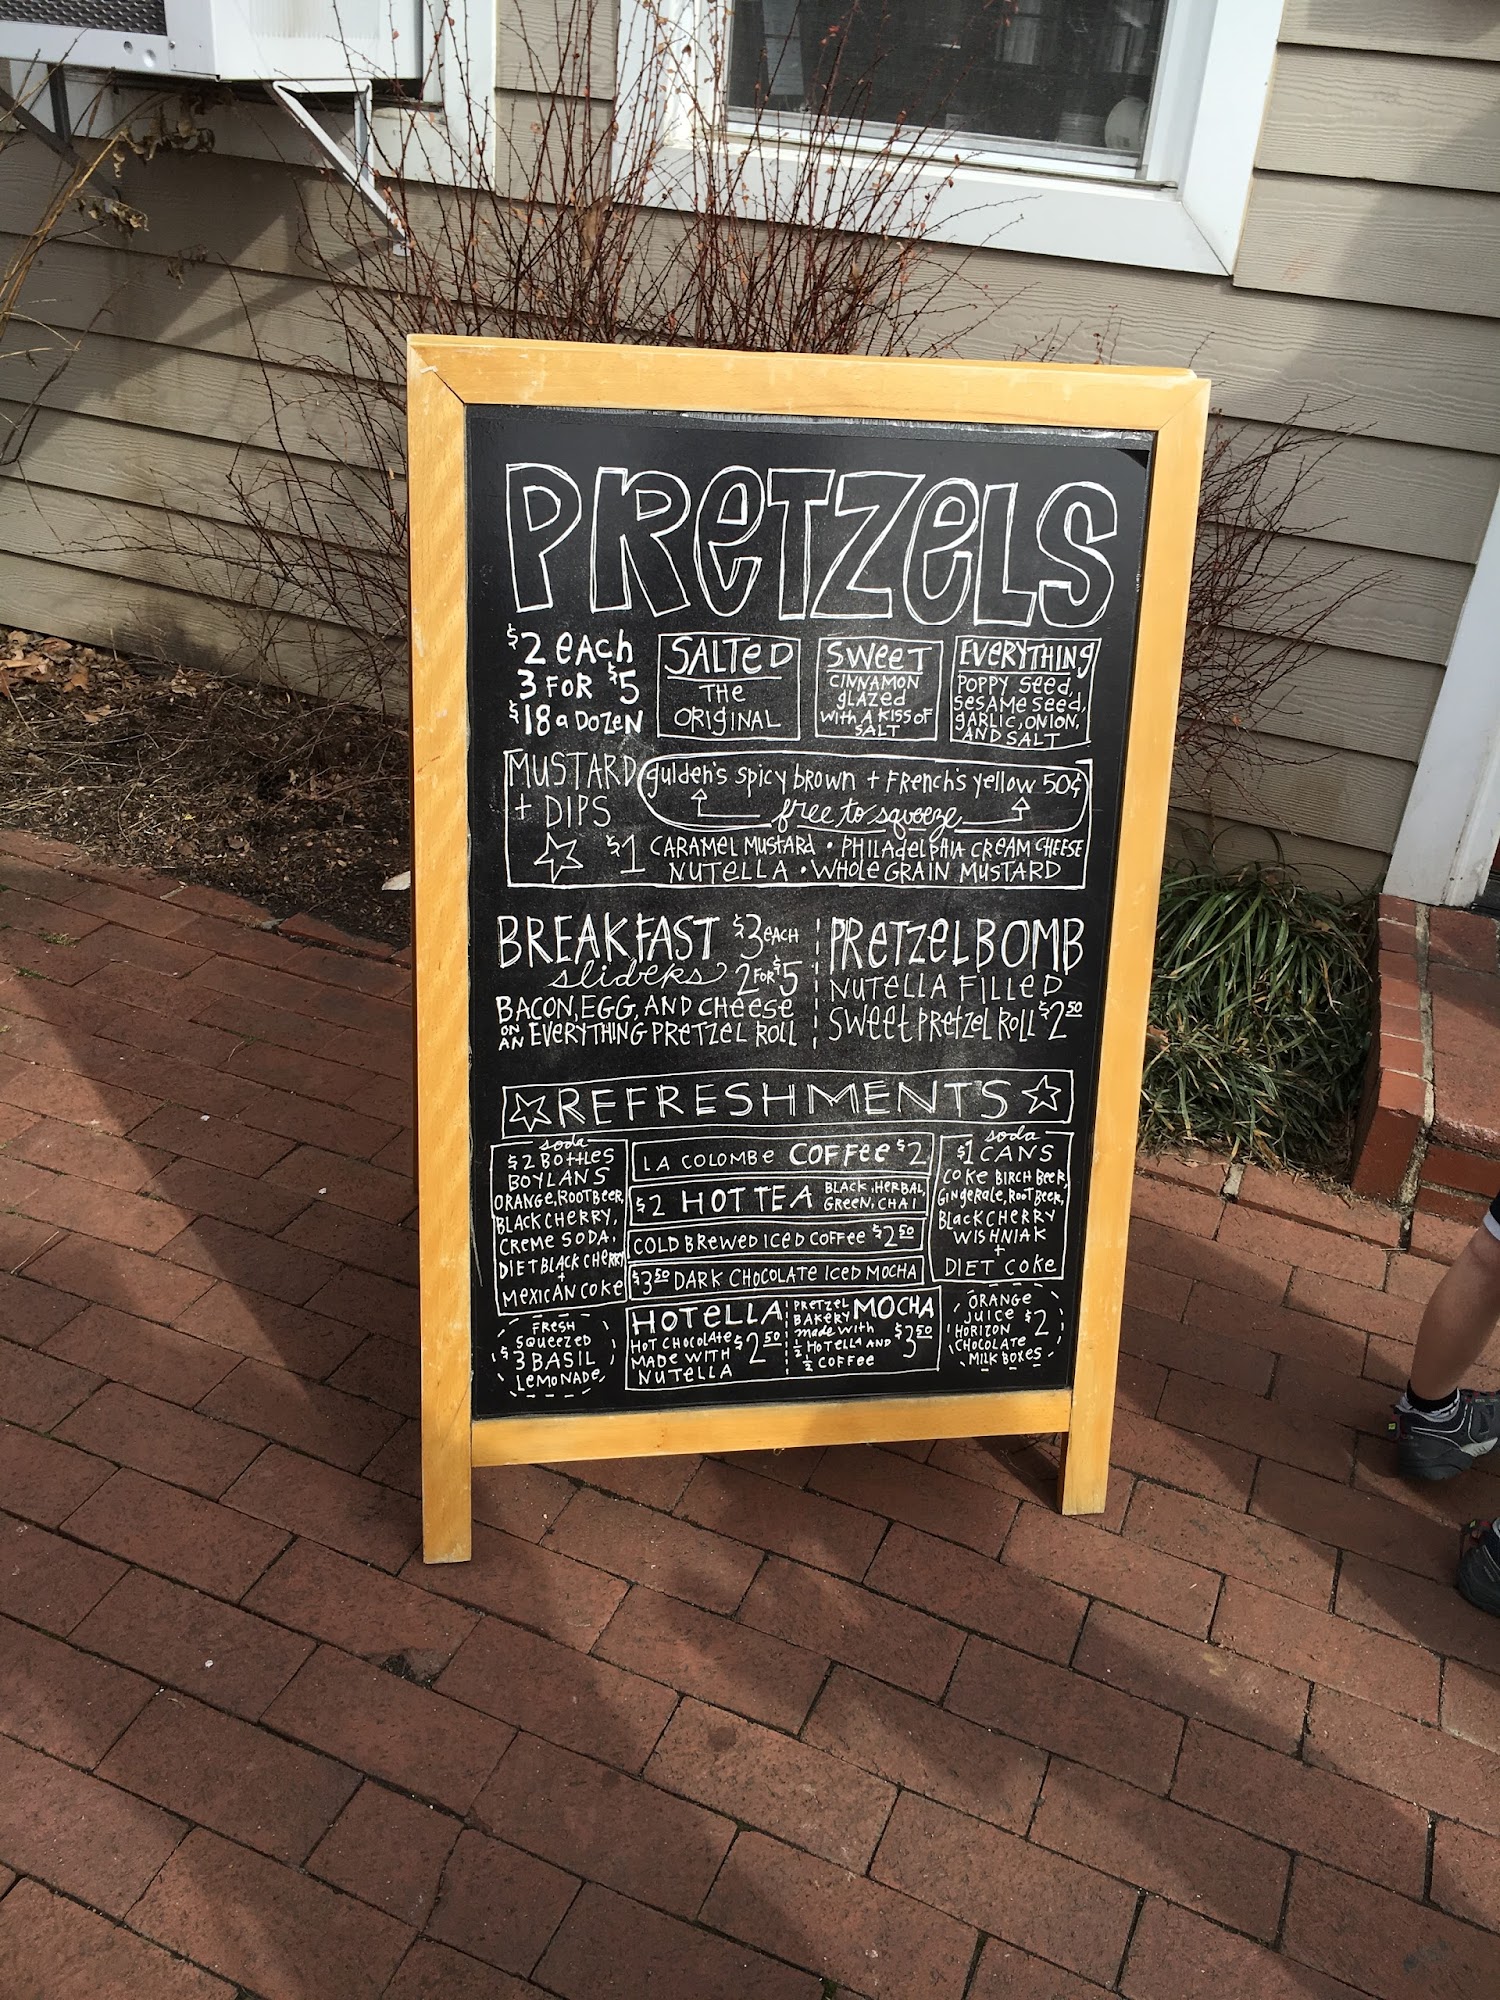 PRETZELS
$2 each
3 FOR $5
$18 a DOZEN
SALTED
THE
ORIGINAL
SWEET
CINNAMON
GLAZED
WITH A KISS OF
SALT
EVERYTHING
POPPY SEED,
SESAME SEED,
GARLIC, ONION,
AND SALT
MUSTARD
+ DIPS
gulden's spicy brown + French's yellow 50¢
free to squeeze
$1 CARAMEL MUSTARD • PHILADELPHIA CREAM CHEESE
NUTELLA • WHOLE GRAIN MUSTARD
BREAKFAST $3 EACH
sliders 2 FOR $5
BACON, EGG, AND CHEESE
ON AN EVERYTHING PRETZEL ROLL
PRETZEL BOMB
NUTELLA FILLED
SWEET PRETZEL ROLL $2.50
REFRESHMENTS
soda
$2 BOTTLES
BOYLANS
ORANGE, ROOT BEER,
BLACK CHERRY,
CREME SODA,
DIET BLACK CHERRY
+
MEXICAN COKE
FRESH
SQUEEZED
$3 BASIL
LEMONADE
LA COLOMBE COFFEE $2
$2 HOT TEA BLACK, HERBAL,
GREEN, CHAI
COLD BREWED ICED COFFEE $2.50
$3.50 DARK CHOCOLATE ICED MOCHA
HOTELLA
HOT CHOCOLATE
MADE WITH
NUTELLA
$2.50
PRETZEL
BAKERY MOCHA
made with
½ HOTELLA AND
½ COFFEE
$3.50
soda
$1 CANS
COKE BIRCH BEER,
GINGERALE, ROOT BEER,
BLACK CHERRY
WISHNIAK
+
DIET COKE
ORANGE
JUICE $2
HORIZON
CHOCOLATE
MILK BOXES